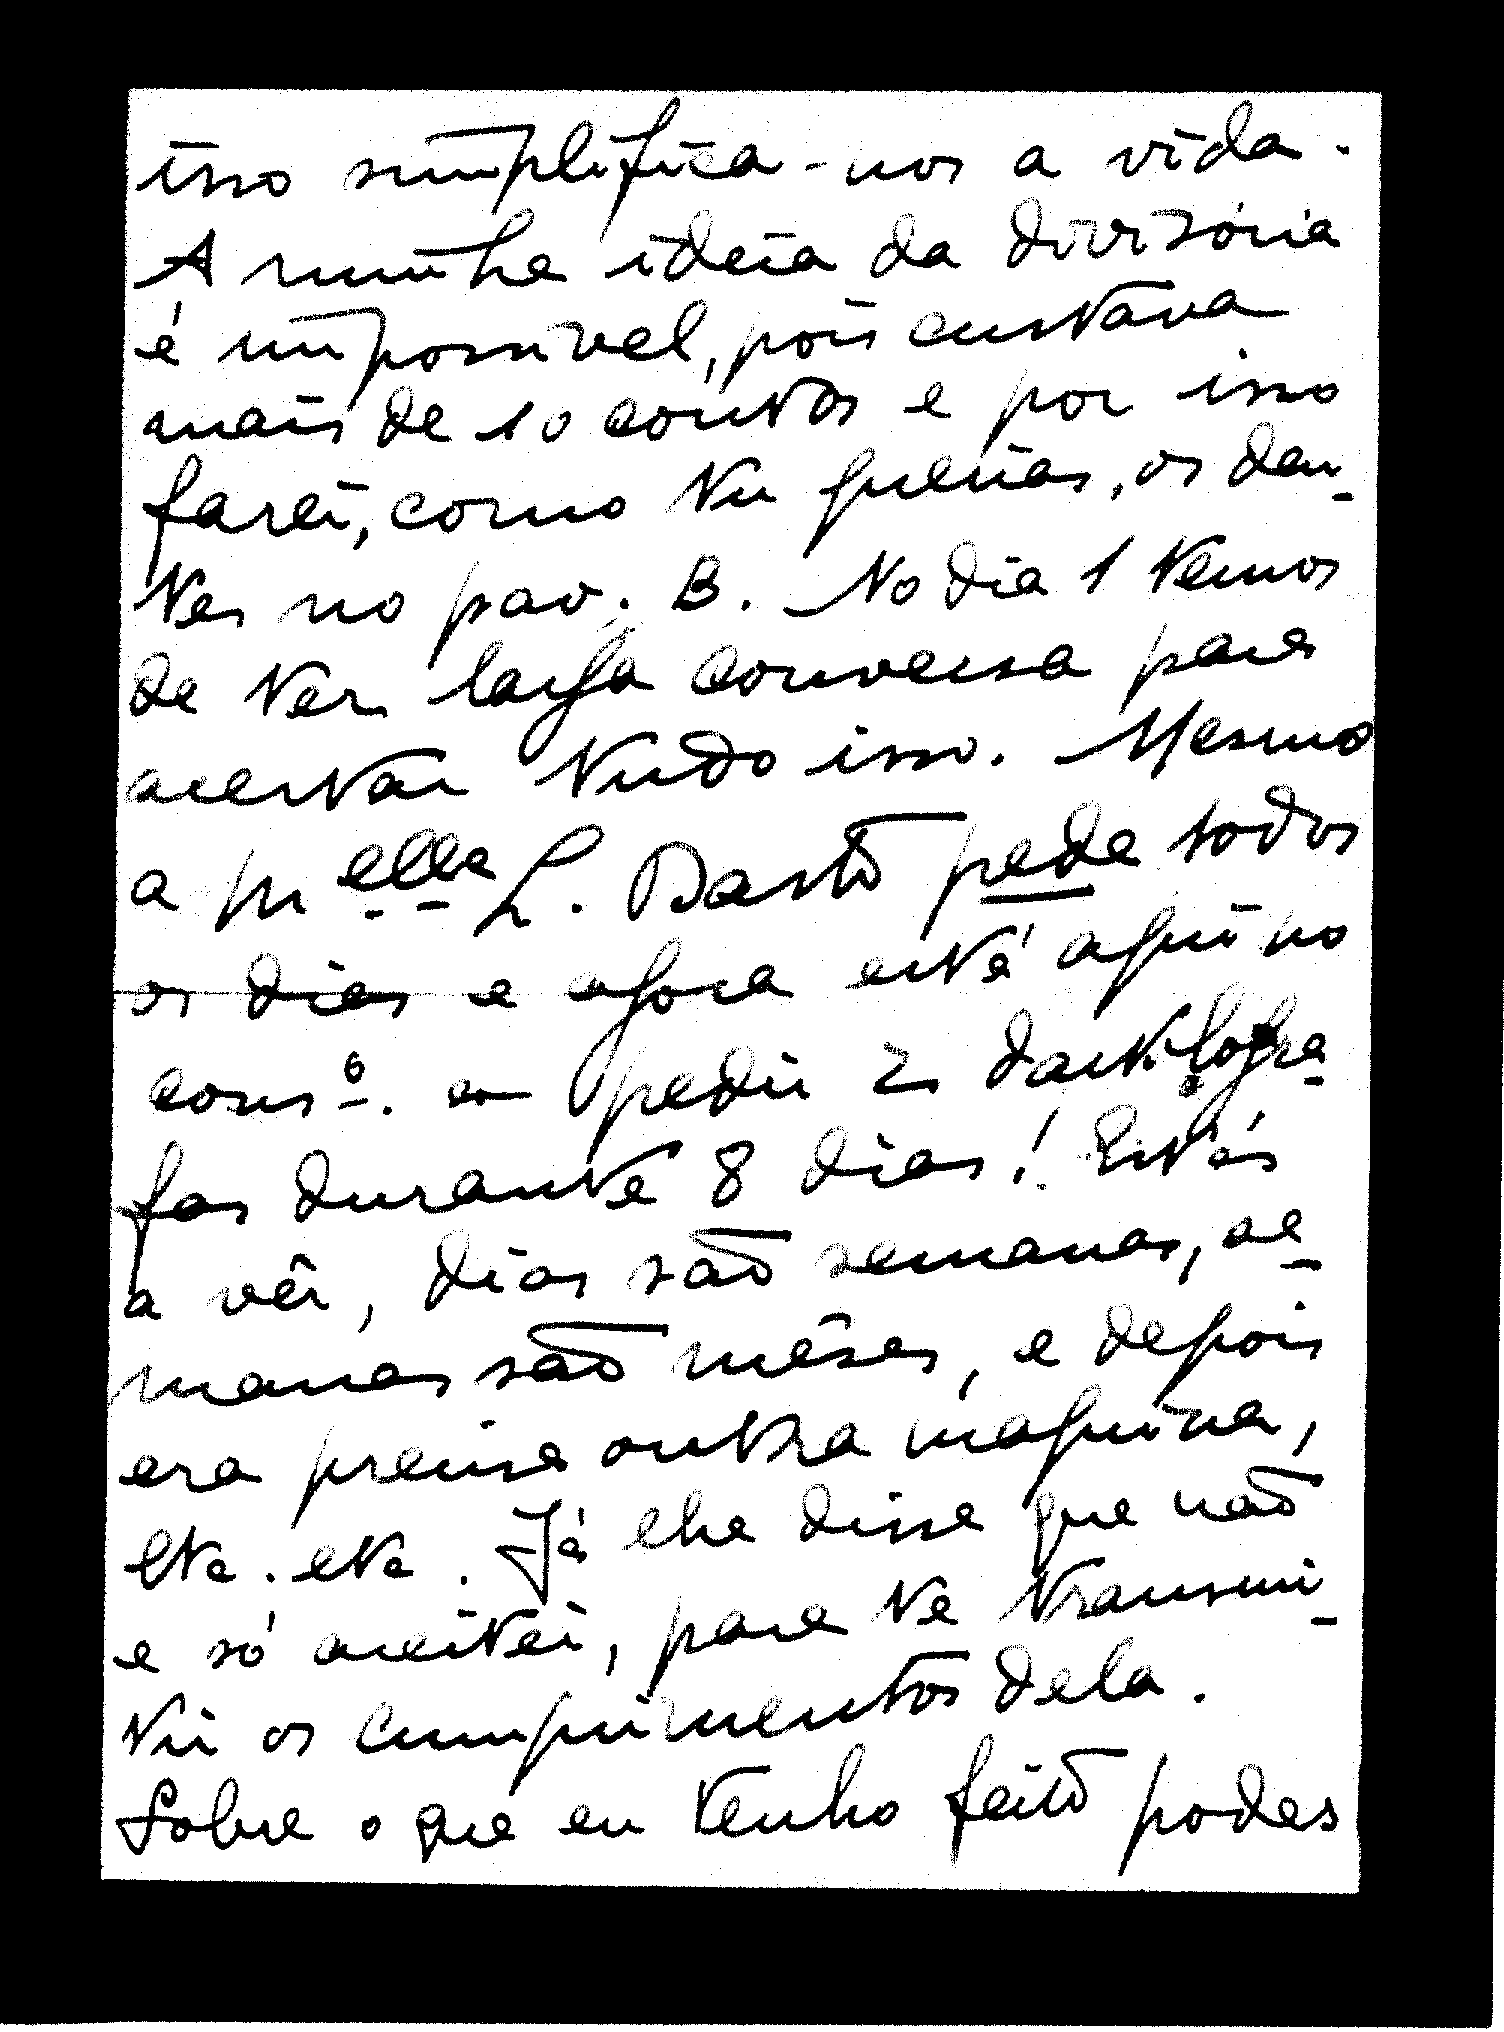 isso simplifica-nos a vida.
A minha ideia da divisória
é impossível, pois custava
mais de 10 contos e por isso
farei, como tu querias, os den-
tes no pav. B. No dia 1 temos
de ter larga conversa para
acertar tudo isso. Mesmo
a M.elle L. Basto pede todos
os dias e agora está aqui no
cons.º a pedir 2 dactilogra-
fas durante 8 dias! Estás
a vêr, dias são semanas, se-
manas são mêses, e depois
era precisa outra maquina,
etc. etc. Já lhe disse que não
e só aceitei, para te transmi-
tir os cumprimentos dela.
Sobre o que eu tenho feito podes